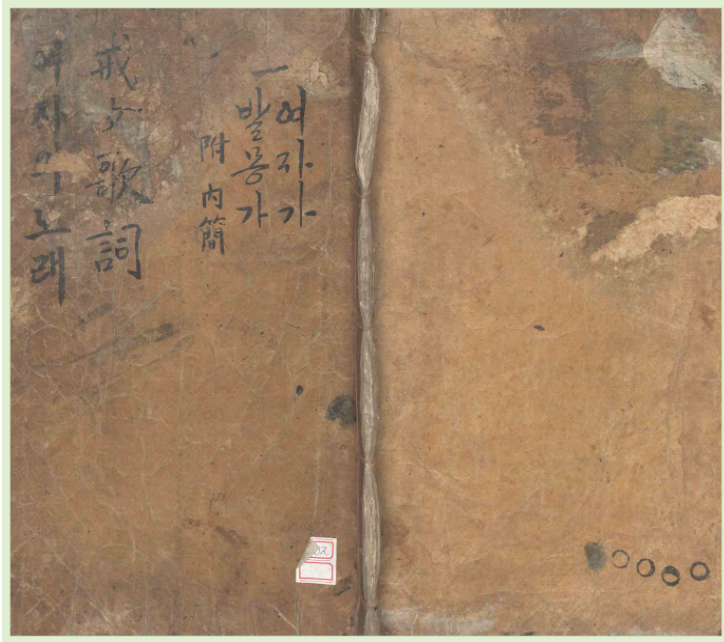 一
여자가
발몽가
附 內簡
戒女歌詞
여자의노래